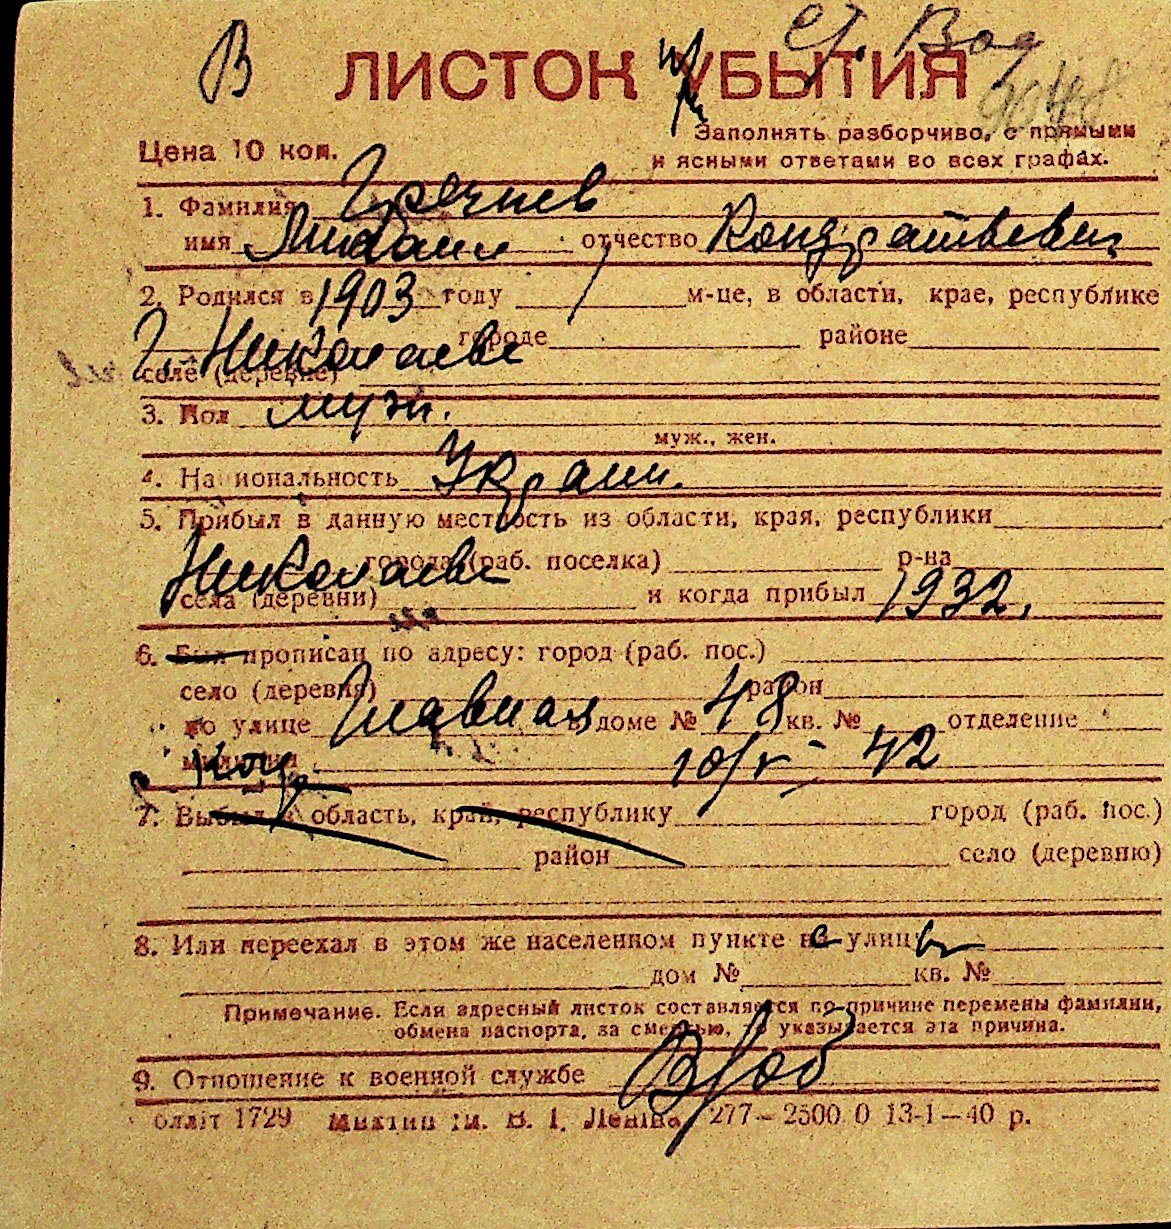 В
ст. Вод
ЛИСТОК УБЫТИЯ
Цена 10 коп.
Заполнять разборчиво, с прямыми
и ясными ответами во всех графах.
1. Фамилия
имя Михаил отчество Кондратьевич
2. Родился в 1903 году м-це, в области, крае, республике
г. Николаеве городе районе
селе (деревне)
3. Пол муж.
муж., жен.
4. Национальность Украин.
5. Прибыл в данную местность из области, края, республики
Николаева города (раб. поселка) р-на
села (деревни) и когда прибыл 1932.
6. Был прописан по адресу: город (раб. пос.)
село (деревня) район
по улице Главная в доме № 48 кв. № отделение
милиции 10/V - 42
7. Выбыл в область, край, республику город (раб. пос.)
район село (деревню)
8. Или переехал в этом же населенном пункте на улицу
дом № кв. №
Примечание. Если адресный листок составляется по причине перемены фамилии,
обмена паспорта, за смертью, то указывается эта причина.
9. Отношение к военной службе
олліт 1729 ім. В. І. Леніна 277—2500 0 13-1—40 р.